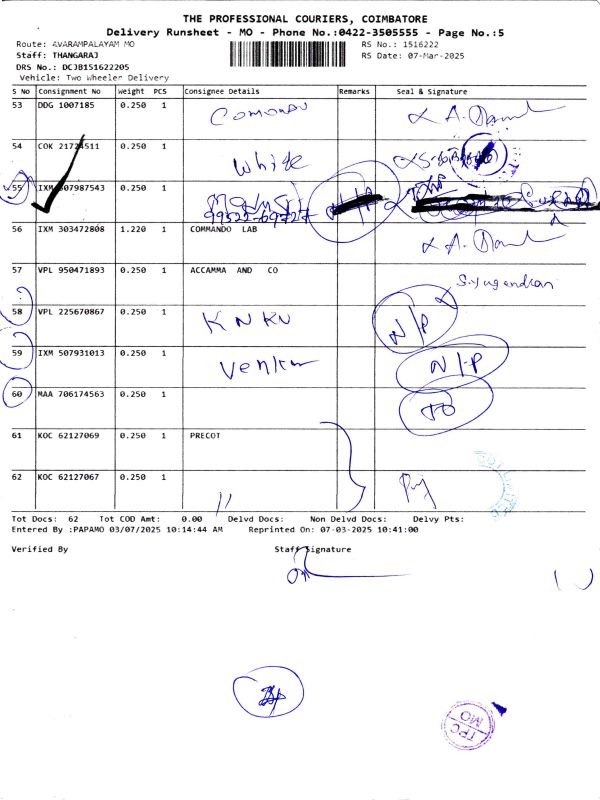 THE PROFESSIONAL COURIERS, COIMBATORE
Delivery Runsheet - MO - Phone No.:0422-3505555 - Page No.:5
Route: AVARAMPALAYAM MO RS No.: 1516222
Staff: THANGARAJ RS Date: 07-Mar-2025
DRS No.: DCJB151622205
Vehicle: Two Wheeler Delivery
S No Consignment No Weight PCS Consignee Details Remarks Seal & Signature
53 DDG 1007185 0.250 1
54 COK 21724511 0.250 1 White
55 IXM 507987543 0.250 1 99522-69727 N/P
56 IXM 303472808 1.220 1 COMMANDO LAB
57 VPL 950471893 0.250 1 ACCAMMA AND CO S.Yugendran
58 VPL 225670867 0.250 1 KNKN N/P
59 IXM 507931013 0.250 1 N/P
60 MAA 706174563 0.250 1
61 KOC 62127069 0.250 1 PRECOT
62 KOC 62127067 0.250 1 "
Tot Docs: 62 Tot COD Amt: 0.00 Delvd Docs: Non Delvd Docs: Delvy Pts:
Entered By :PAPAMO 03/07/2025 10:14:44 AM Reprinted On: 07-03-2025 10:41:00
Verified By Staff Signature
TPC
MO